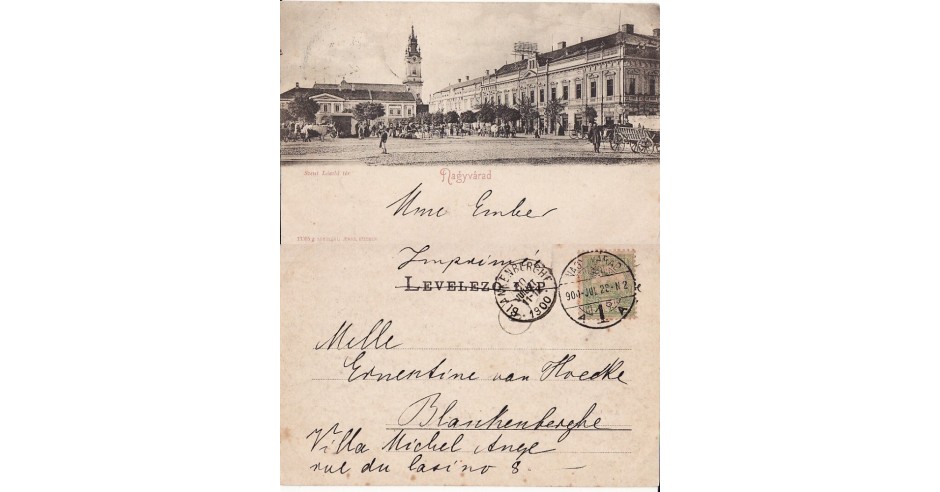 Szent László tér
Nagyvárad
Mme Ember
Imprimé
LEVELEZŐ-LAP
BLANKENBERGHE
JUIL
11-12
1900
NAGYVÁRAD
900-JUL 22-N2
A 1 A
Melle
Ernentine van Hoecke
Blankenberghe
Villa Michel Ange
rue du Casino 8